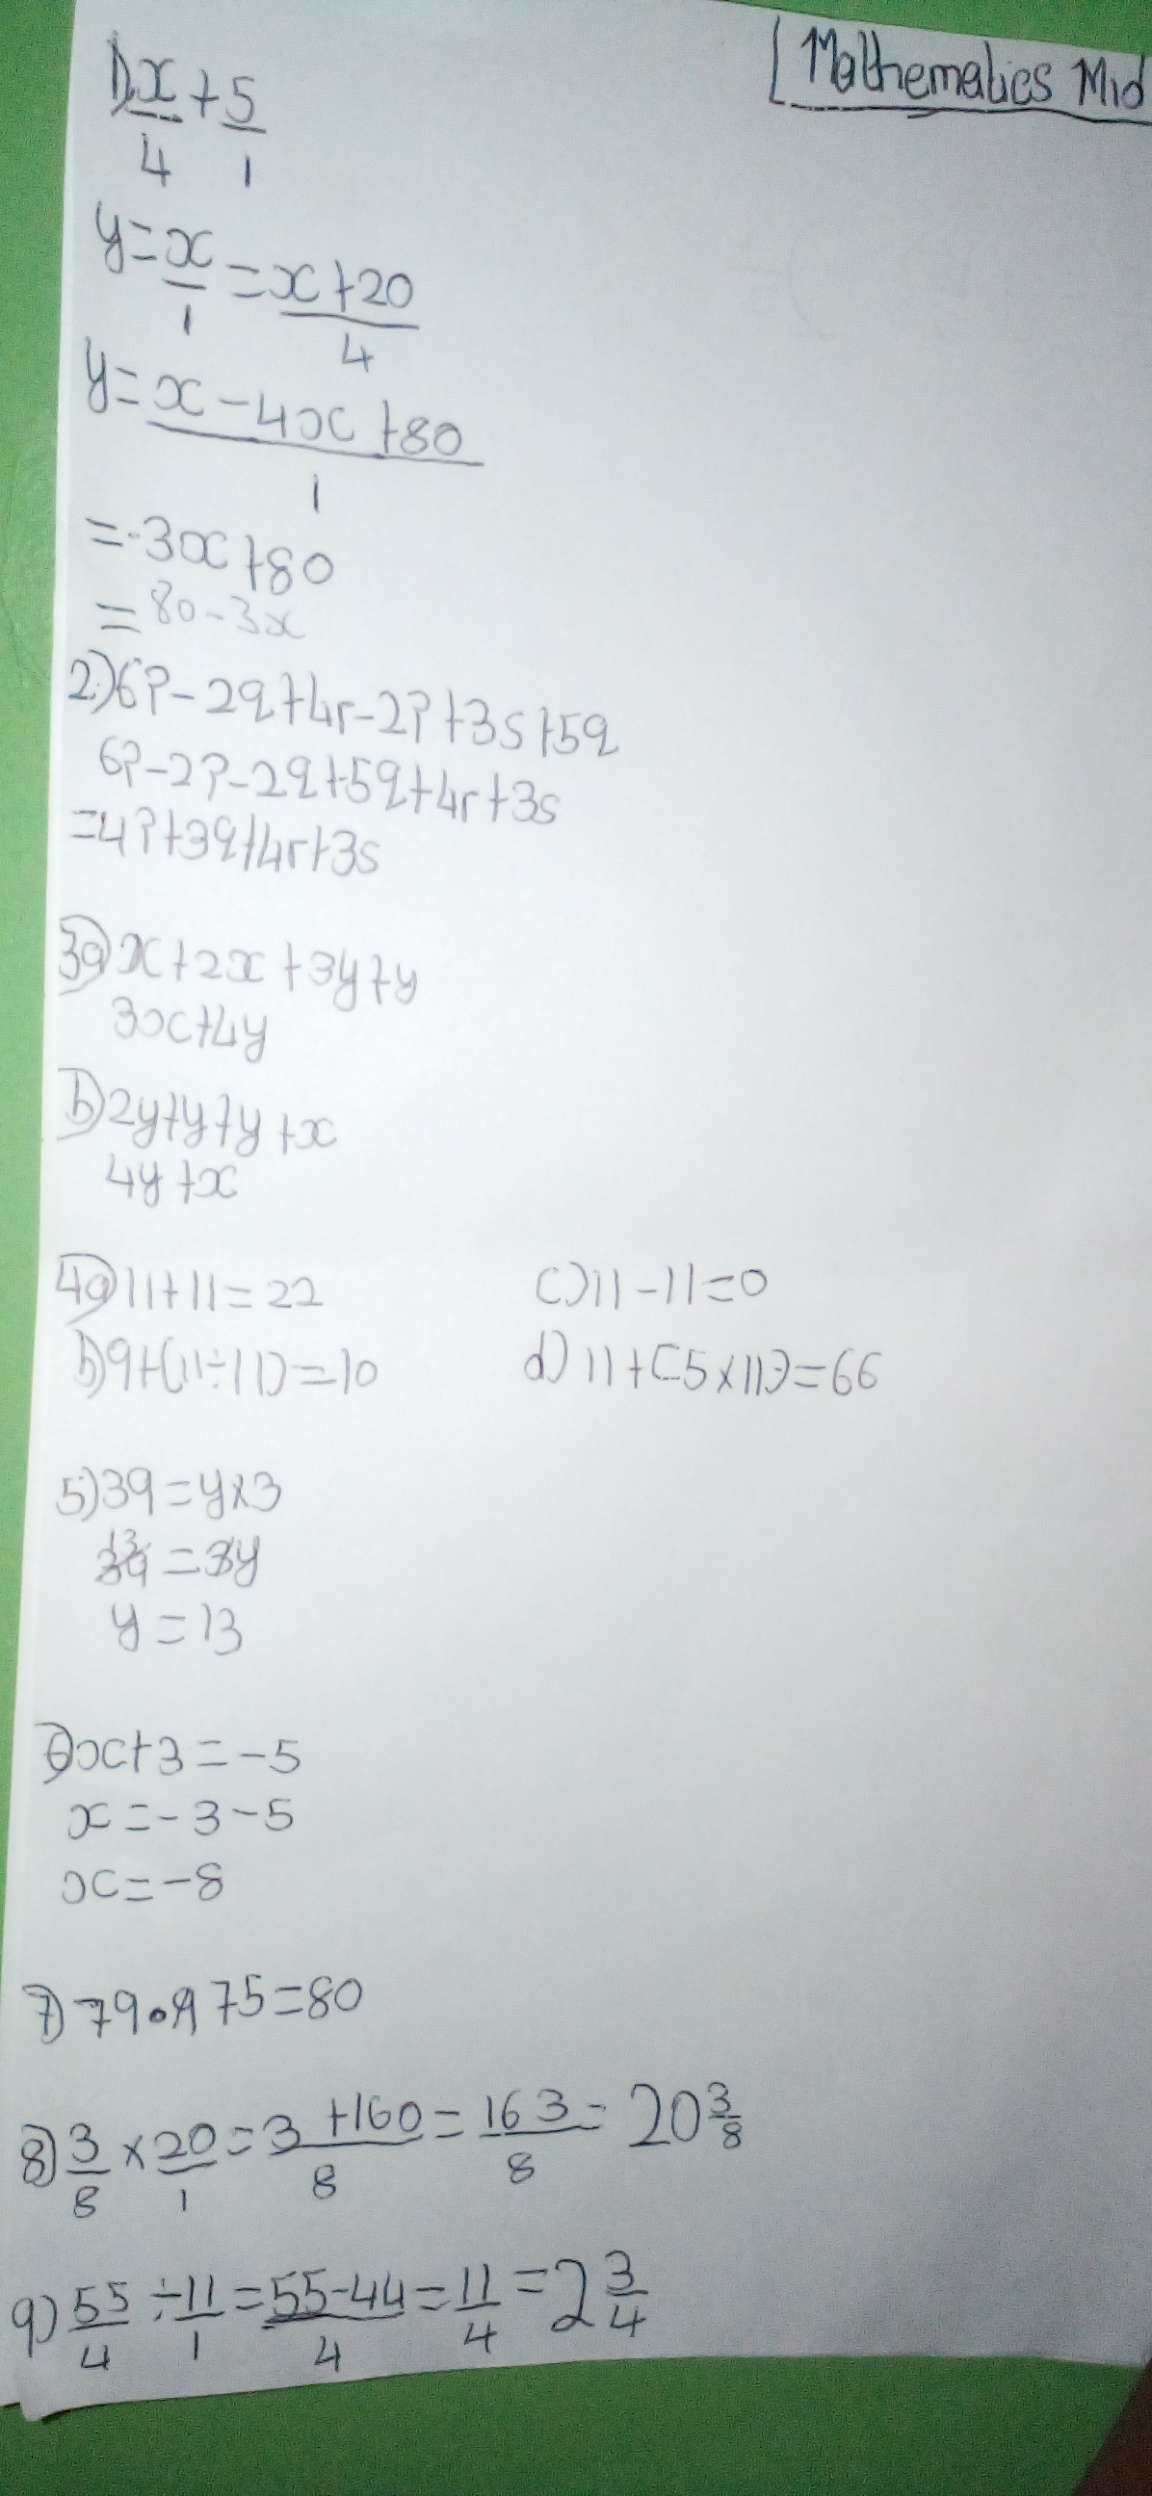 Mathematics Mid
1) x/4 + 5/1
y = x/1 = x+20/4
y = x - 4x + 80/1
= -3x + 80
= 80 - 3x
2) 6p - 2q + 4r - 2p + 3s + 5q
6p - 2p - 2q + 5q + 4r + 3s
= 4p + 3q + 4r + 3s
3a) x + 2x + 3y + y
3x + 4y
b) 2y + y + y + x
4y + x
4a) 11 + 11 = 22 c) 11 - 11 = 0
b) 9 + (11 ÷ 11) = 10 d) 11 + (5 x 11) = 66
5) 39 = y x 3
13
39 = 3y
y = 13
6) x + 3 = -5
x = -3 - 5
x = -8
7) 79.975 = 80
8) 3/8 x 20/1 = 3 + 160/8 = 163/8 = 20 3/8
9) 55/4 ÷ 11/1 = 55 - 44/4 = 11/4 = 2 3/4